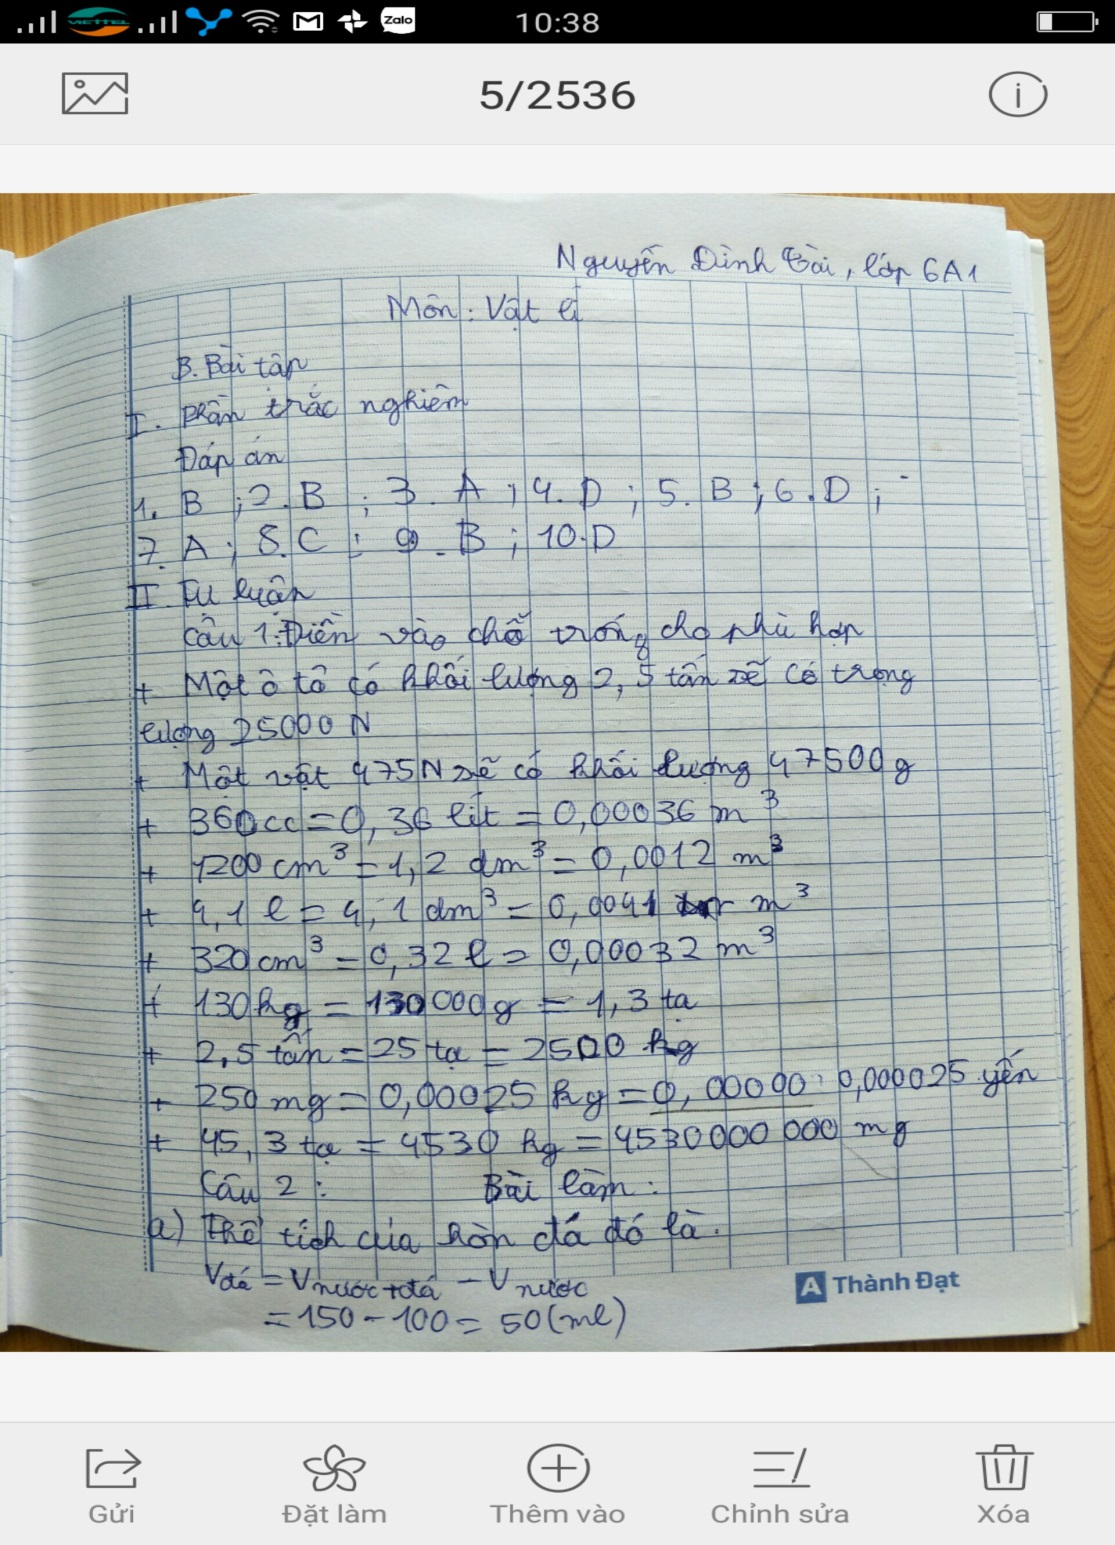 VIETTEL Zalo 10:38
5/2536
Nguyễn Đình Tài, lớp 6A1
Môn: Vật lí
B. Bài tập
I. Phần trắc nghiệm
Đáp án
1. B ; 2. B ; 3. A ; 4. D ; 5. B ; 6. D ;
7. A ; 8. C ; 9. B ; 10. D
II. Tự luận
Câu 1: Điền vào chỗ trống cho phù hợp
+ Một ô tô có khối lượng 2,5 tấn sẽ có trọng
lượng 25000 N
+ Một vật 475N sẽ có khối lượng 47500g
+ 360cc = 0,36 lít = 0,00036 m³
+ 1200 cm³ = 1,2 dm³ = 0,0012 m³
+ 4,1 l = 4,1 dm³ = 0,0041 m³
+ 320 cm³ = 0,32 l = 0,00032 m³
+ 130kg = 130000g = 1,3 tạ
+ 2,5 tấn = 25 tạ = 2500 kg
+ 250 mg = 0,00025 kg = 0,00000 0,000025 yến
+ 45,3 tạ = 4530 kg = 4530000000 mg
Câu 2: Bài làm:
a) Thể tích của hòn đá đó là:
Vđá = Vnước+đá - Vnước
= 150 - 100 = 50 (ml)
A Thành Đạt
Gửi Đặt làm Thêm vào Chỉnh sửa Xóa